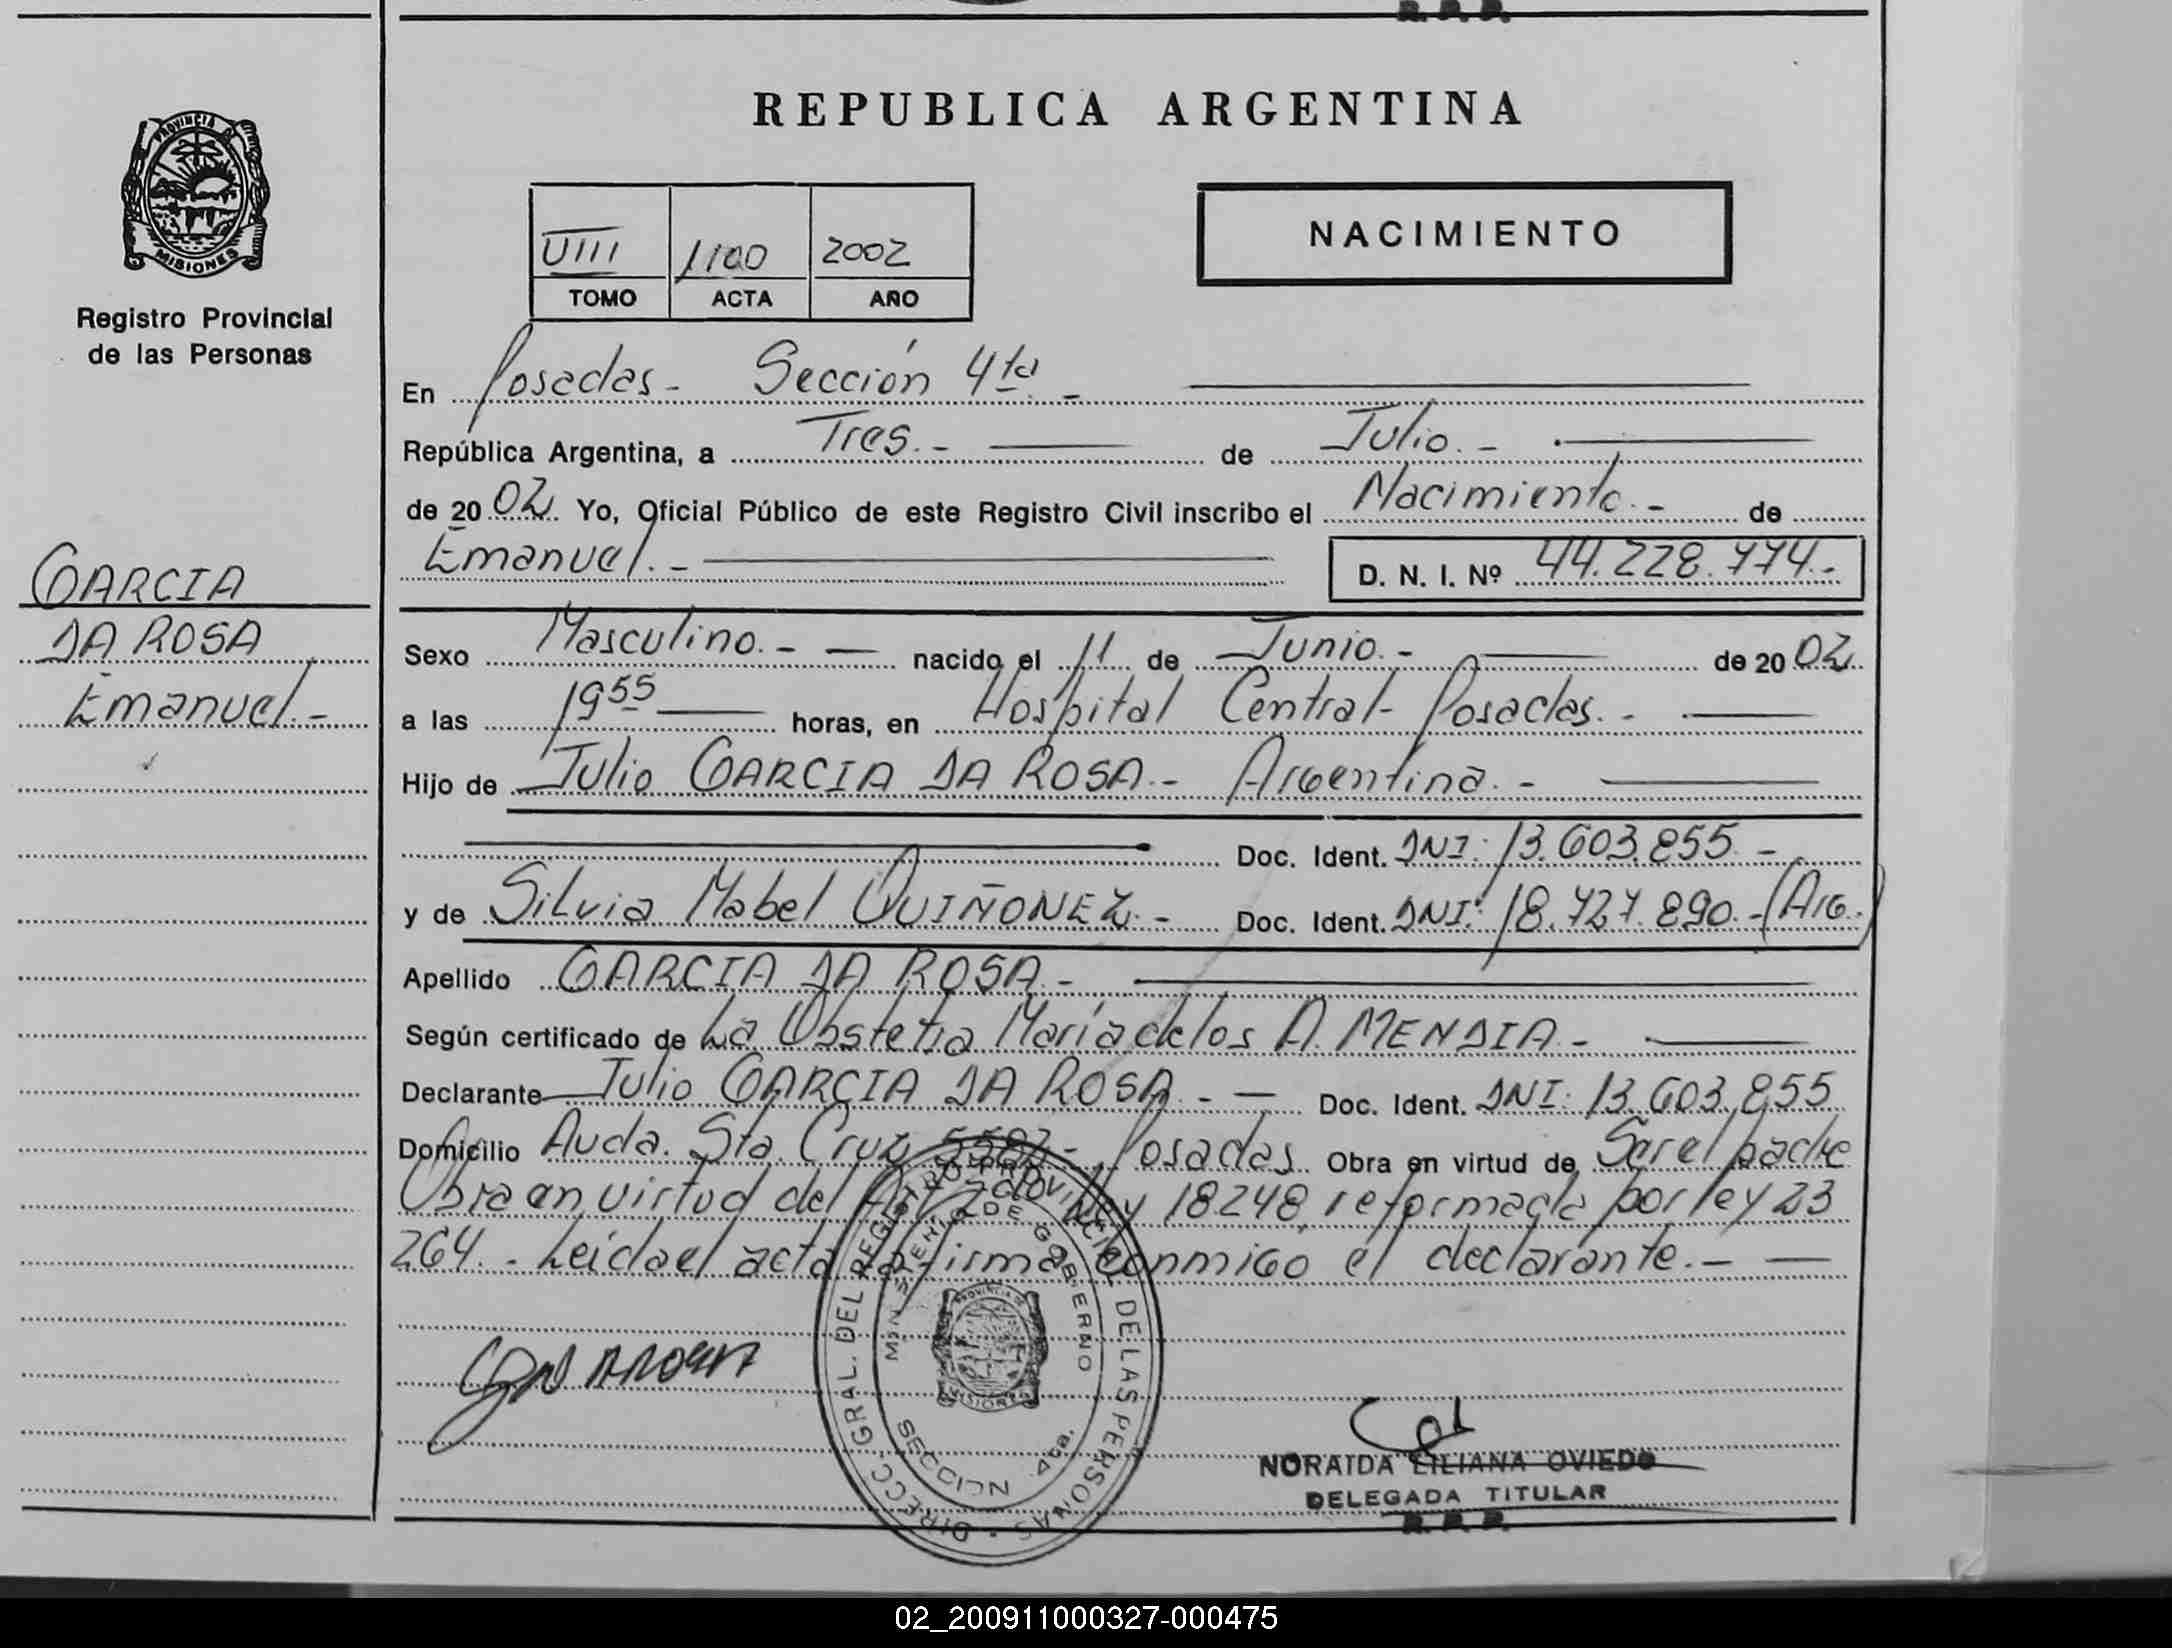 REPUBLICA ARGENTINA
PROVINCIA DE
MISIONES
Registro Provincial
de las Personas
GARCIA
DA ROSA
Emanuel.-
VIII 1100 2002
TOMO ACTA AÑO
NACIMIENTO
En Posadas- Sección 4ta.-
República Argentina, a Tres.- de Julio.-
de 2002 Yo, Oficial Público de este Registro Civil inscribo el Nacimiento.- de
Emanuel.- D. N. I. Nº 44.228.774.-
Sexo Masculino.- nacido el 11 de Junio.- de 2002
a las 19 55 horas, en Hospital Central- Posadas.-
Hijo de Julio GARCIA DA ROSA.- Argentina.-
Doc. Ident. DNI: 13.603.855.-
y de Silvia Mabel QUIÑONEZ.- Doc. Ident. DNI: 18.727.890.-(Arg.)
Apellido GARCIA DA ROSA.-
Según certificado de La Obstetra María de los A. MENDIA.-
Declarante Julio GARCIA DA ROSA.- Doc. Ident. DNI: 13.603.855
Domicilio Avda. Sta. Cruz - Posadas. Obra en virtud de Ser el padre
Obra en virtud del Ley 18248, reformada por ley 23
264.- Leida el acta firma conmigo el declarante.-
DIRECC. GRAL. DEL REGISTRO PROVINCIAL DE LAS PERSONAS
MINISTERIO DE GOBIERNO
PROVINCIA DE
MISIONES
SECCION 4ta.
NORAIDA LILIANA OVIEDO
DELEGADA TITULAR
R. P. P.
02_200911000327-000475